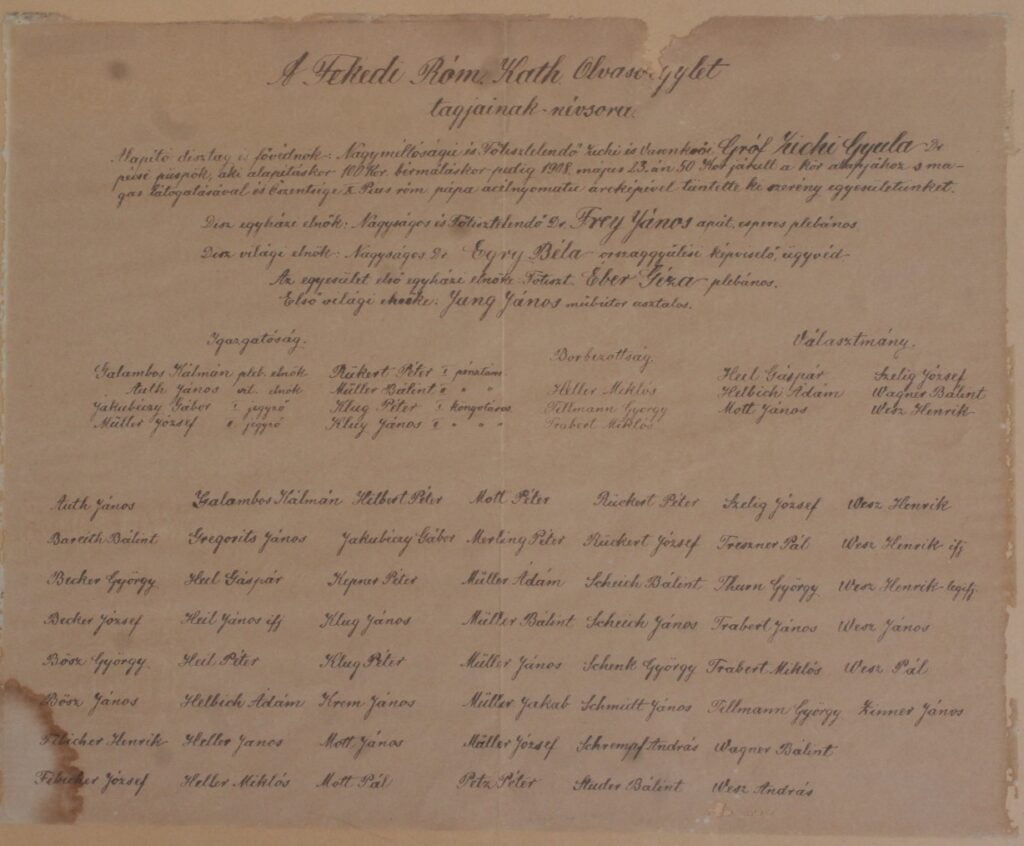 A Fekedi Róm. Kath. Olvasó egylet
tagjainak névsora.
Alapító disztag és fővédnök: Nagyméltóságú és Főtisztelendő Zichi és Vásonkeői Gróf Zichi Gyula Dr
pécsi püspök, aki alapitáskor 100 Kor. bérmáláskor pedig 1908. május 23.án 50 Kor járult a kör alapjához s ma-
gas látogatásával és Őszentsége X. Pius róm. pápa aczélnyomatú arcképével tüntette ki szerény egyesületünket.
Disz egyházi elnök: Nagyságos és Főtisztelendő Dr. Frey János apát, esperes plébános
Disz világi elnök: Nagyságos Dr. Egry Béla országgyülési képviselő, ügyvéd
Az egyesület első egyházi elnöke Főtiszt. Éber Géza plébános.
Első világi elnöke: Jung János műbútor asztalos.
Igazgatóság. Borbizottság. Választmány.
Galambos Kálmán pleb. elnök Rückert Péter I pénztáros Heil Gáspár Szelig József
Auth János vil. elnök Müller Bálint II " " Heller Miklós Helbich Ádám Wagner Bálint
Jakubiczy Gábor I jegyző Klug Péter I Tillmann György Mott János Wesz Henrik
Müller József II jegyző Klug János II " " " Trabert Miklós
Auth János Galambos Kálmán Hilbert Péter Mott Péter Rückert Péter Szelig József Wesz Henrik
Bareith Bálint Gregorits János Jakubiczy Gábor Merling Péter Rückert József Treszner Pál Wesz Henrik ifj
Becker György Heil Gáspár Kepner Péter Müller Ádám Scheich Bálint Thurn György Wesz Henrik legifj.
Becker József Heil János ifj Klug János Müller Bálint Scheich János Trabert János Wesz János
Bősz György Heil Péter Klug Péter Müller János Schenk György Trabert Miklós Wesz Pál
Bősz János Helbich Ádám Krem János Müller Jakab Schmidt János Tillmann György Zinner János
Fibicher Henrik Heller János Mott János Müller József Schrempf András Wagner Bálint
Fibicher József Heller Miklós Mott Pál Petz Péter Studer Bálint Wesz András